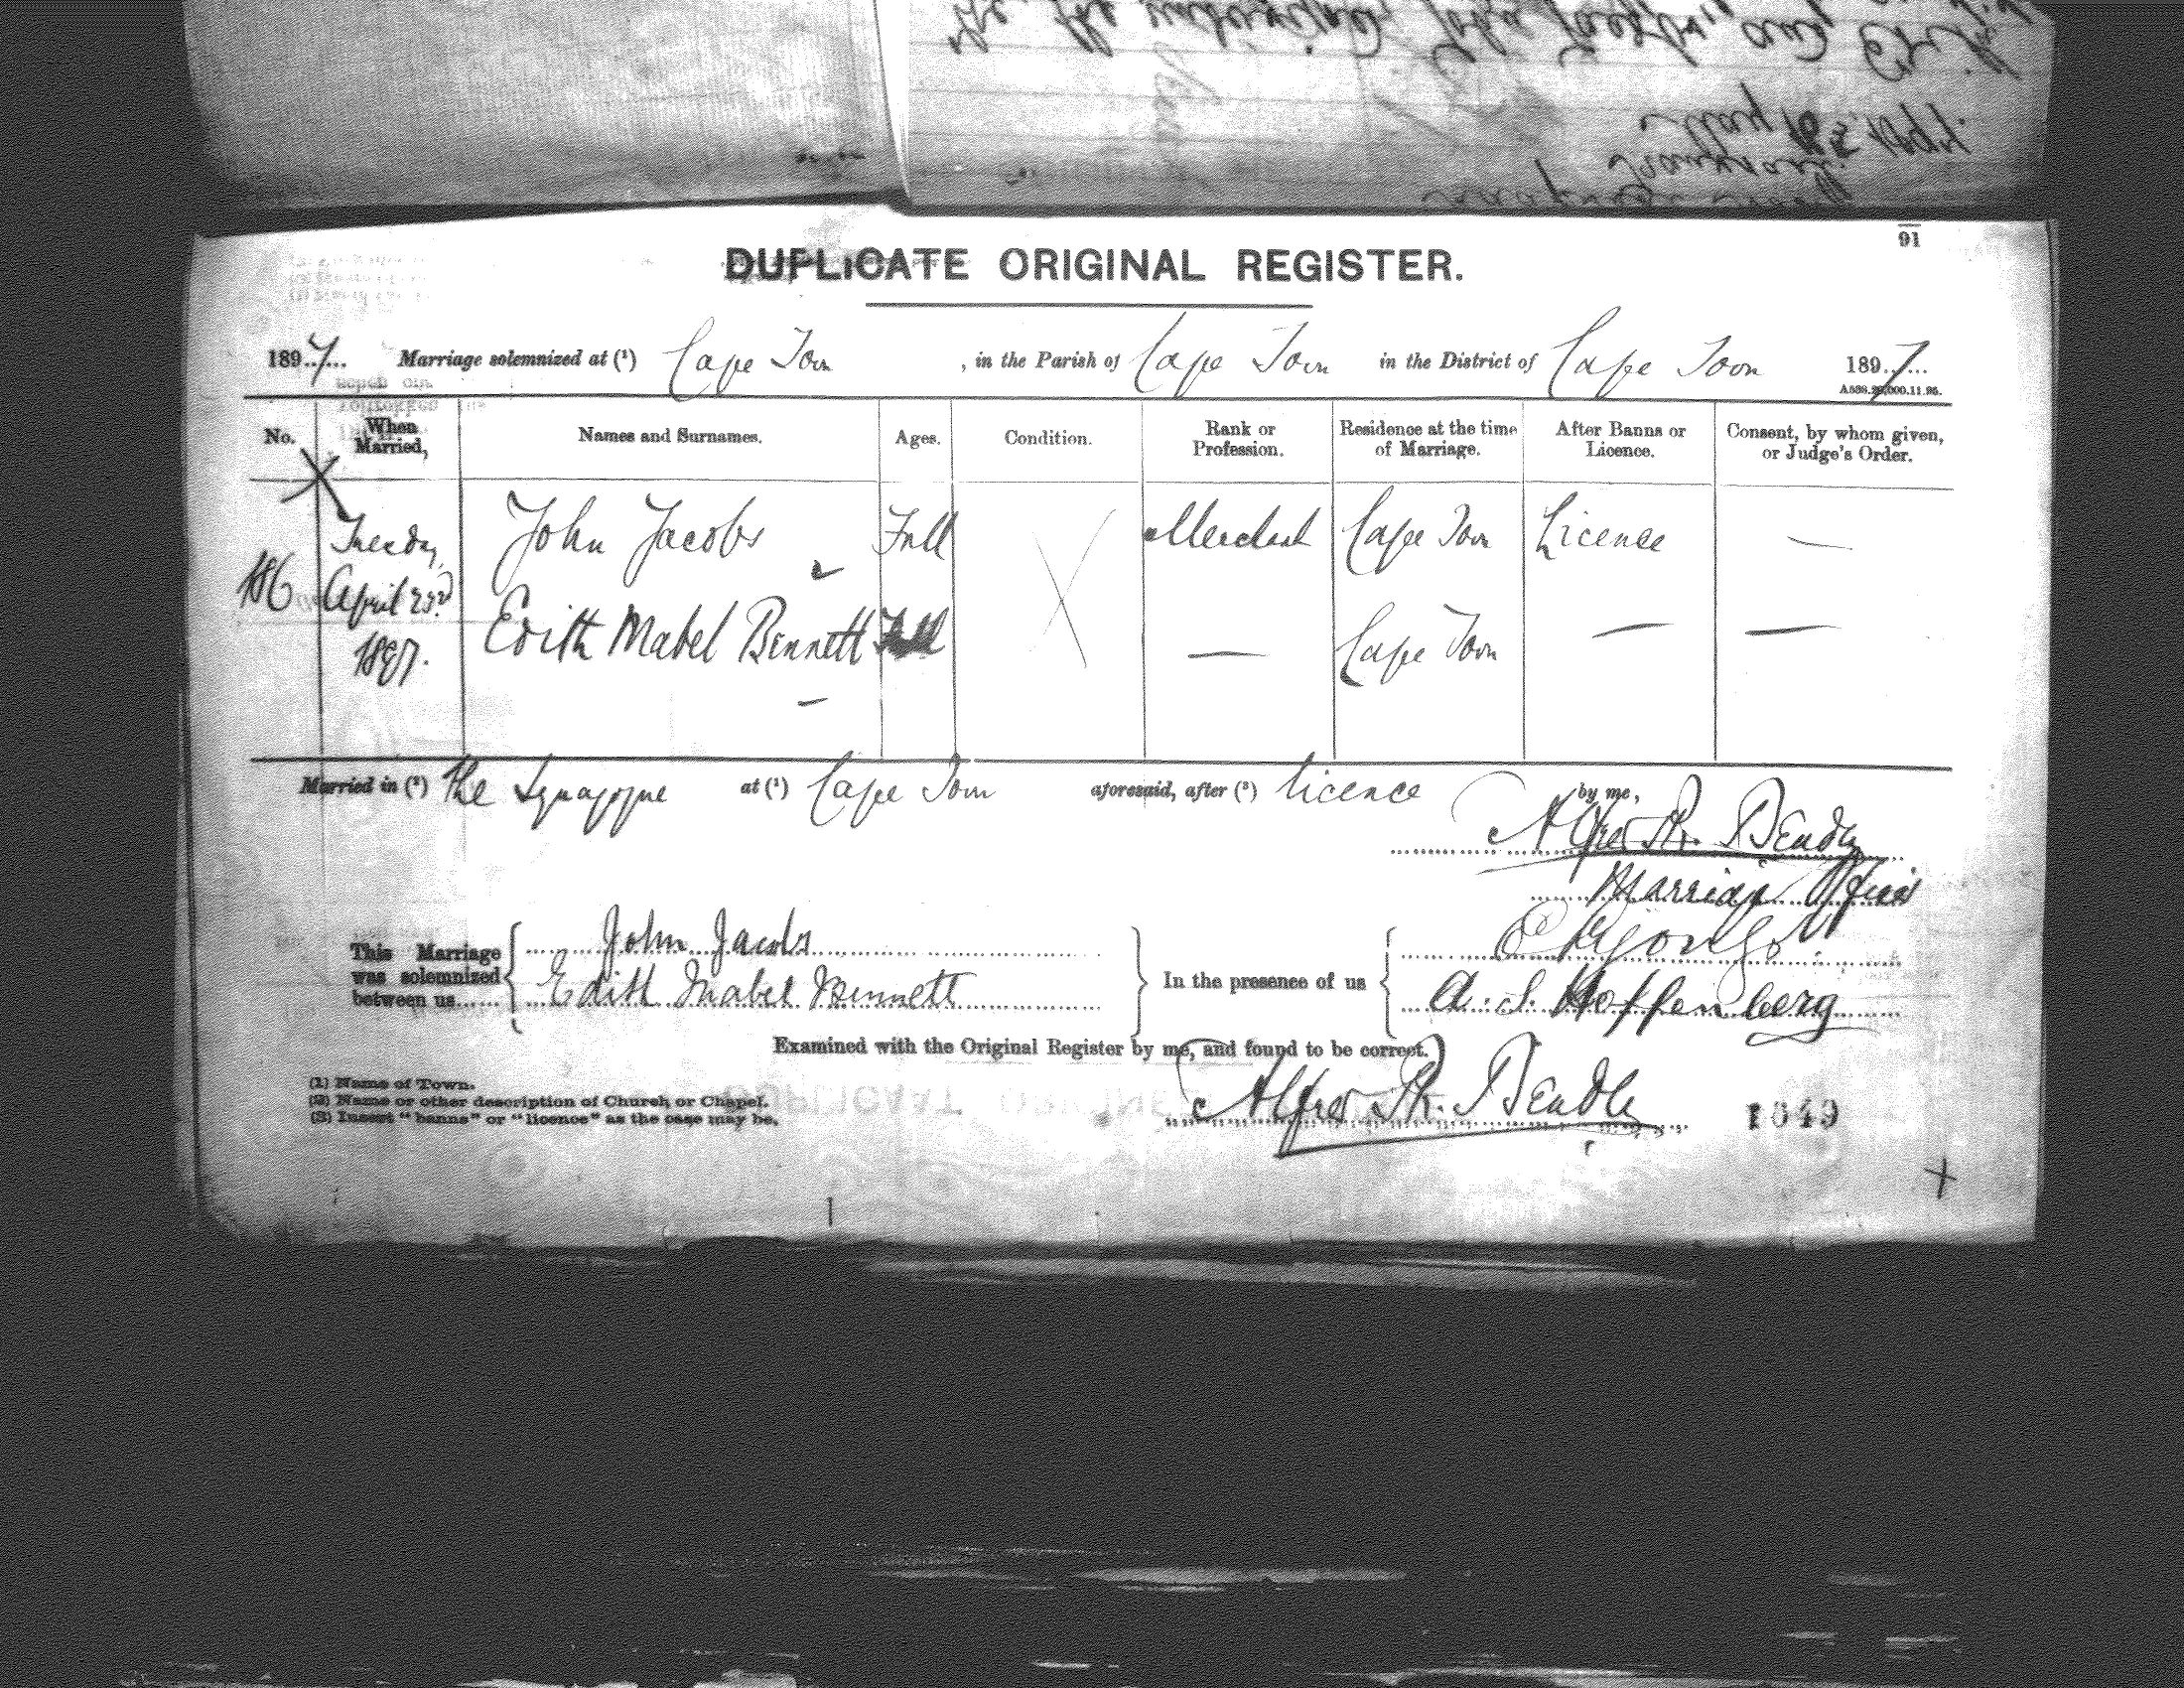 91
DUPLICATE ORIGINAL REGISTER.
1897 Marriage solemnized at (¹) Cape Town, in the Parish of Cape Town in the District of Cape Town 1897
No. When Married, Names and Surnames. Ages. Condition. Rank or Profession. Residence at the time of Marriage. After Banns or Licence. Consent, by whom given, or Judge's Order.
186 Tuesday John Jacobs Full Merchant Cape Town Licence —
April 1897. Edith Mabel Bennett Full — Cape Town — —
Married in (²) the Synagogue at (¹) Cape Town aforesaid, after (³) licence by me,
Alfred P. Bender
Marriage Officer
This Marriage was solemnized between us...... John Jacobs
Edith Mabel Bennett
In the presence of us
A. S. Hoffenberg
Examined with the Original Register by me, and found to be correct.
(1) Name of Town.
(2) Name or other description of Church or Chapel.
(3) Insert "banns" or "licence" as the case may be.
Alfred P. Bender
1649